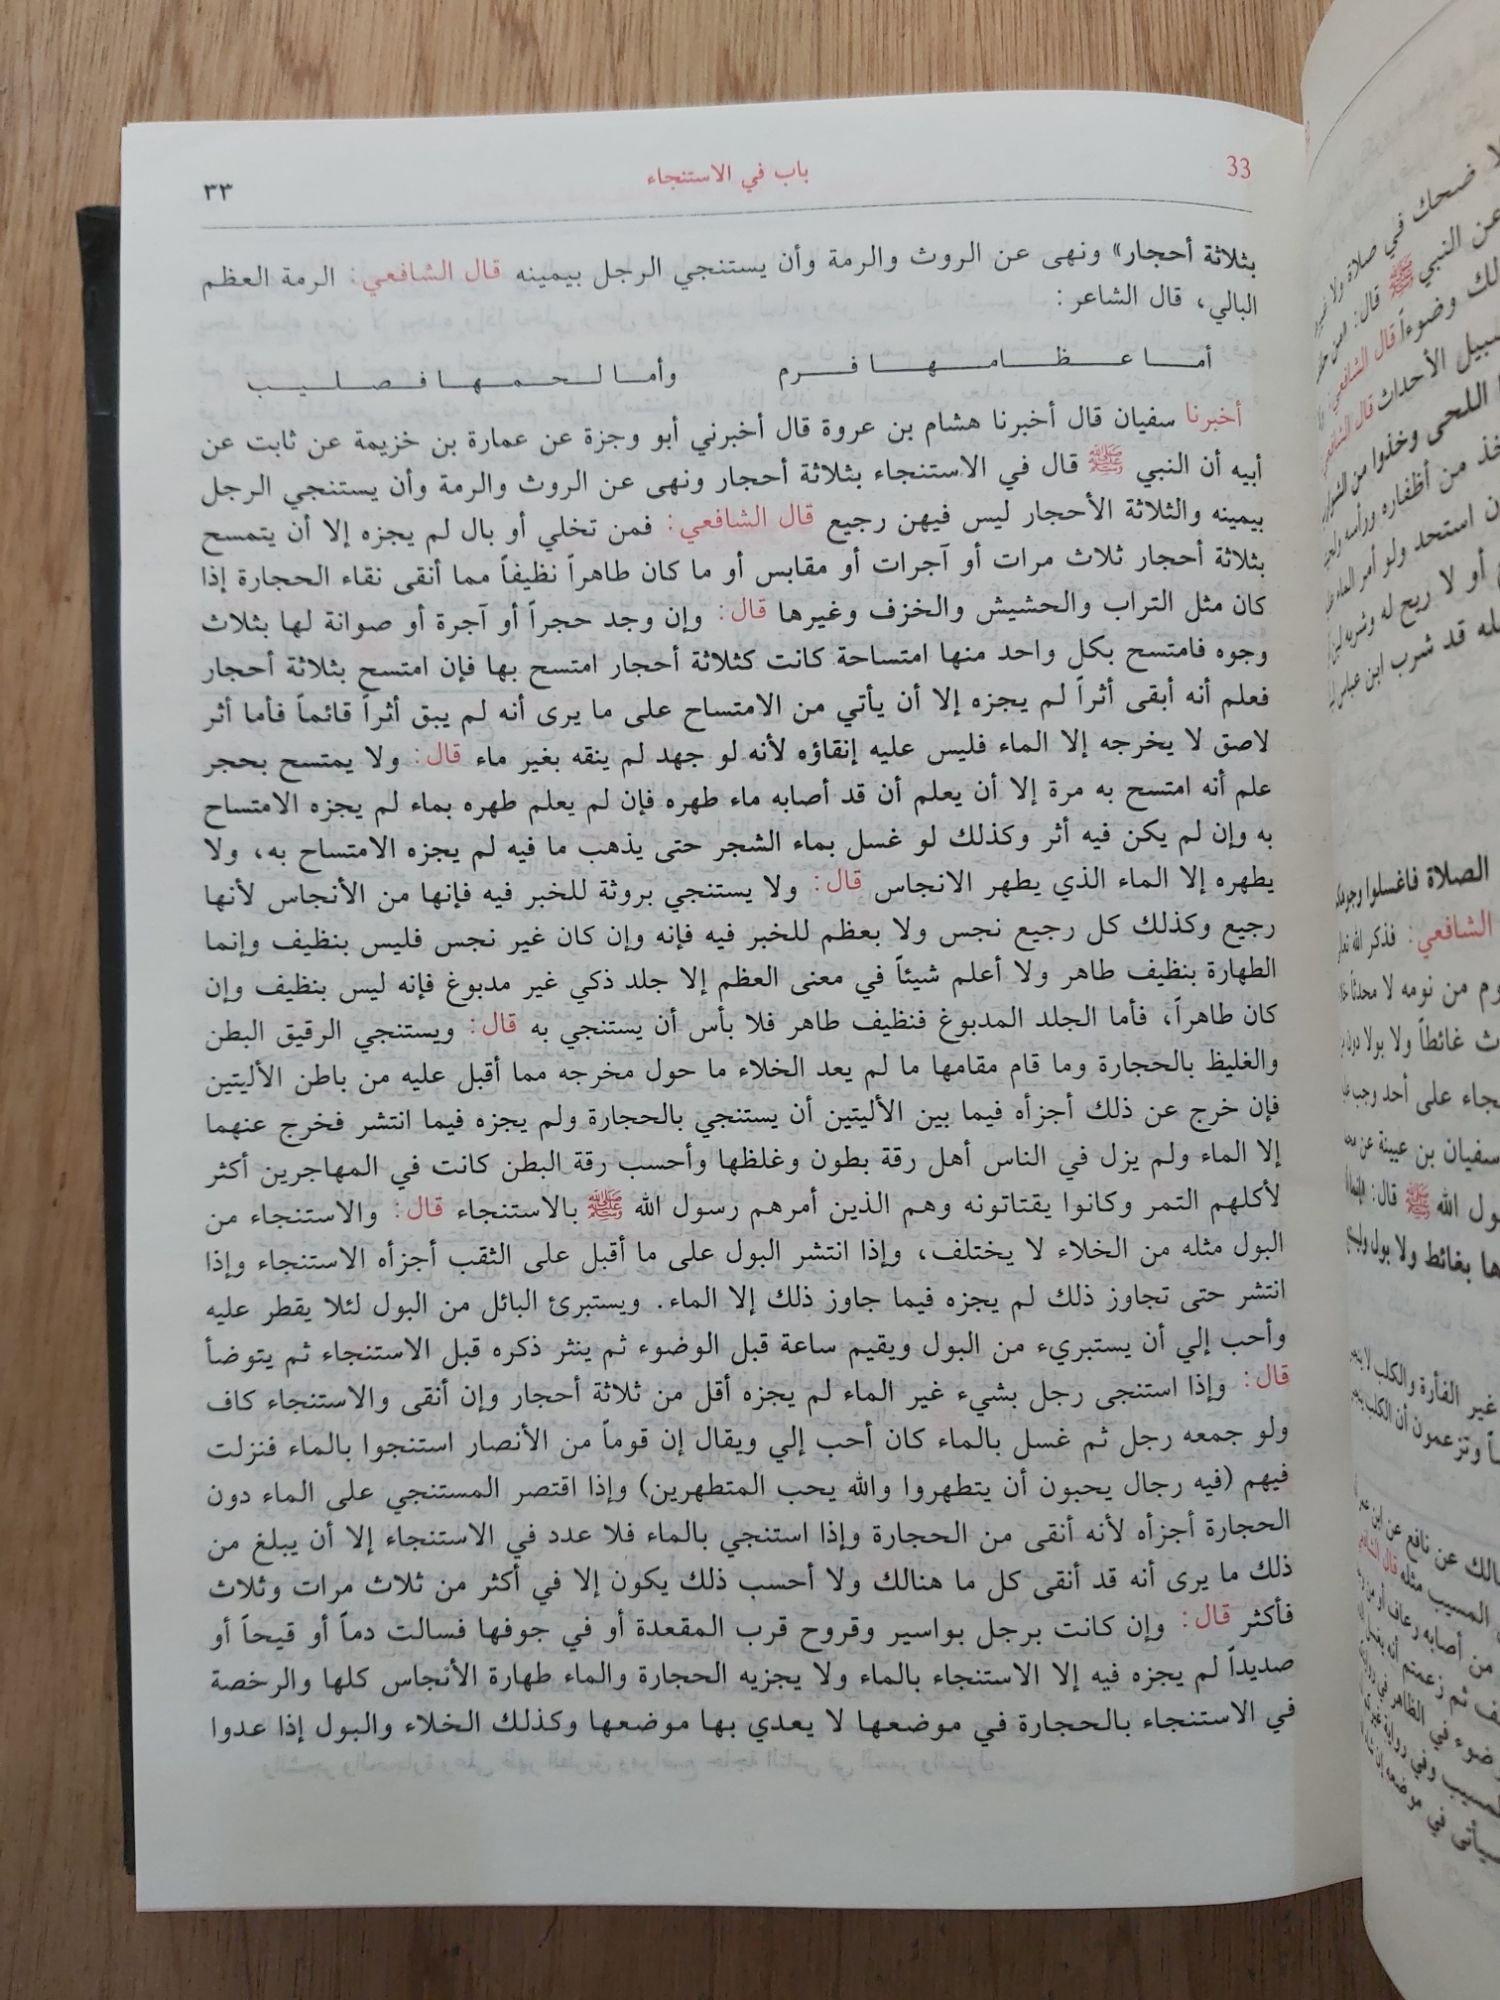 33 باب في الاستنجاء ٣٣
بثلاثة أحجار» ونهى عن الروث والرمة وأن يستنجي الرجل بيمينه قال الشافعي: الرمة العظم
البالي، قال الشاعر:
أما عظامها فرم وأما لحمها فصليب
أخبرنا سفيان قال أخبرنا هشام بن عروة قال أخبرني أبو وجزة عن عمارة بن خزيمة عن ثابت عن
أبيه أن النبي ﷺ قال في الاستنجاء بثلاثة أحجار ونهى عن الروث والرمة وأن يستنجي الرجل
بيمينه والثلاثة الأحجار ليس فيهن رجيع قال الشافعي: فمن تخلي أو بال لم يجزه إلا أن يتمسح
بثلاثة أحجار ثلاث مرات أو آجرات أو مقابس أو ما كان طاهراً نظيفاً مما أنقى نقاء الحجارة إذا
كان مثل التراب والحشيش والخزف وغيرها قال: وإن وجد حجراً أو آجرة أو صوانة لها بثلاث
وجوه فامتسح بكل واحد منها امتساحة كانت كثلاثة أحجار امتسح بها فإن امتسح بثلاثة أحجار
فعلم أنه أبقى أثراً لم يجزه إلا أن يأتي من الامتساح على ما يرى أنه لم يبق أثراً قائماً فأما أثر
لاصق لا يخرجه إلا الماء فليس عليه إنقاؤه لأنه لو جهد لم ينقه بغير ماء قال: ولا يمتسح بحجر
علم أنه امتسح به مرة إلا أن يعلم أن قد أصابه ماء طهره فإن لم يعلم طهره بماء لم يجزه الامتساح
به وإن لم يكن فيه أثر وكذلك لو غسل بماء الشجر حتى يذهب ما فيه لم يجزه الامتساح به، ولا
يطهره إلا الماء الذي يطهر الانجاس قال: ولا يستنجي بروثة للخبر فيه فإنها من الأنجاس لأنها
رجيع وكذلك كل رجيع نجس ولا بعظم للخبر فيه فإنه وإن كان غير نجس فليس بنظيف وإنما
الطهارة بنظيف طاهر ولا أعلم شيئاً في معنى العظم إلا جلد ذكي غير مدبوغ فإنه ليس بنظيف وإن
كان طاهراً، فأما الجلد المدبوغ فنظيف طاهر فلا بأس أن يستنجي به قال: ويستنجي الرقيق البطن
والغليظ بالحجارة وما قام مقامها ما لم يعد الخلاء ما حول مخرجه مما أقبل عليه من باطن الأليتين
فإن خرج عن ذلك أجزأه فيما بين الأليتين أن يستنجي بالحجارة ولم يجزه فيما انتشر فخرج عنهما
إلا الماء ولم يزل في الناس أهل رقة بطون وغلظها وأحسب رقة البطن كانت في المهاجرين أكثر
لأكلهم التمر وكانوا يقتاتونه وهم الذين أمرهم رسول الله ﷺ بالاستنجاء قال: والاستنجاء من
البول مثله من الخلاء لا يختلف، وإذا انتشر البول على ما أقبل على الثقب أجزأه الاستنجاء وإذا
انتشر حتى تجاوز ذلك لم يجزه فيما جاوز ذلك إلا الماء. ويستبرئ البائل من البول لئلا يقطر عليه
وأحب إلي أن يستبريء من البول ويقيم ساعة قبل الوضوء ثم ينثر ذكره قبل الاستنجاء ثم يتوضأ
قال: وإذا استنجى رجل بشيء غير الماء لم يجزه أقل من ثلاثة أحجار وإن أنقى والاستنجاء كاف
ولو جمعه رجل ثم غسل بالماء كان أحب إلي ويقال إن قوماً من الأنصار استنجوا بالماء فنزلت
فيهم (فيه رجال يحبون أن يتطهروا والله يحب المتطهرين) وإذا اقتصر المستنجي على الماء دون
الحجارة أجزأه لأنه أنقى من الحجارة وإذا استنجي بالماء فلا عدد في الاستنجاء إلا أن يبلغ من
ذلك ما يرى أنه قد أنقى كل ما هنالك ولا أحسب ذلك يكون إلا في أكثر من ثلاث مرات وثلاث
فأكثر قال: وإن كانت برجل بواسير وقروح قرب المقعدة أو في جوفها فسالت دماً أو قيحاً أو
صديداً لم يجزه فيه إلا الاستنجاء بالماء ولا يجزيه الحجارة والماء طهارة الأنجاس كلها والرخصة
في الاستنجاء بالحجارة في موضعها لا يعدي بها موضعها وكذلك الخلاء والبول إذا عدوا
لا ضحك في صلاة ولا
عن النبي ﷺ قال:
وضوءاً قال الشافعي:
سبيل الأحداث قال الشافعي
اللحى وخذوا من
من أظفاره ورأسه
استحد ولو أمر الماء
أو لا ريح له
قد شرب ابن عباس
الصلاة فاغسلوا
الشافعي: فذكر الله
من نومه لا محدثاً
غائطاً ولا بولا دون
على أحد وجب
سفيان بن عيينة عن
الله ﷺ قال:
بغائط ولا بول
غير الفأرة والكلب
وتزعمون أن الكلب
عن نافع عن ابن
المسيب مثله قال
من أصابه رعاف أو
ثم زعمتم أنه
في الظاهر في
المسيب وفي رواية
في موضعه